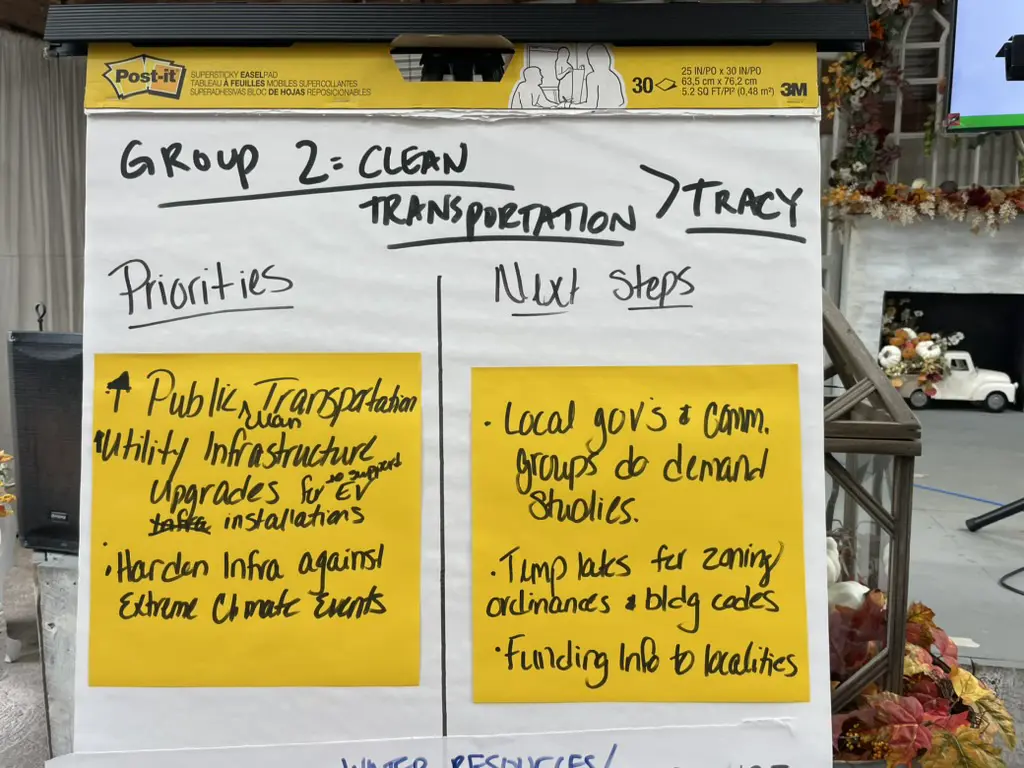 Post-it
SUPERSTICKY EASEL PAD
TABLEAU À FEUILLES MOBILES SUPERCOLLANTES
SUPERADHESIVAS BLOC DE HOJAS REPOSICIONABLES
30
25 IN/PO x 30 IN/PO
63,5 cm x 76,2 cm
5.2 SQ FT/PI² (0,48 m²)
3M
GROUP 2: CLEAN
TRANSPORTATION > TRACY
Priorities
↑ Public Transportation
Utility Infrastructure
Upgrades for to support EV
Infra installations
• Harden Infra against
Extreme Climate Events
Next Steps
• Local gov's & comm.
groups do demand
studies.
• Templates for zoning
ordinances & bldg codes
• Funding Info to localities
WATER RESOURCES/